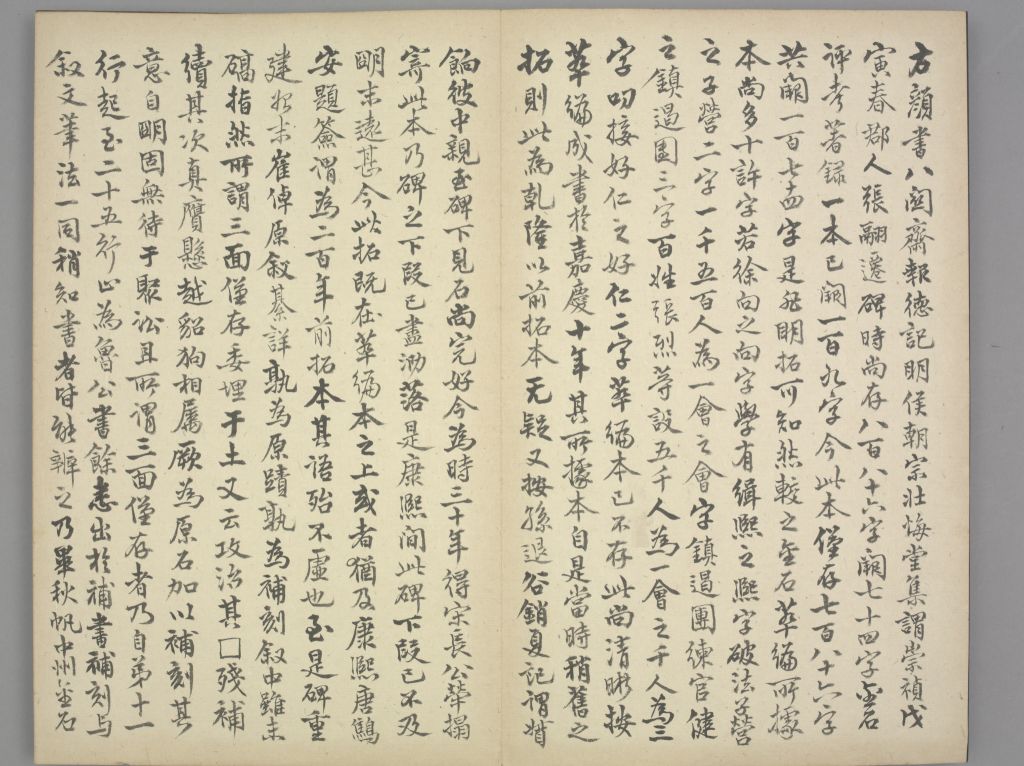 右顏書八關齋報德記明侯朝宗壯悔堂集謂崇禎戊
寅春郡人張翮遷碑時尚存八百八十六字闕七十四字金石
評考著錄一本已闕一百九字今此本僅存七百八十六字
共闕一百七十四字是非明拓可知然較之金石萃編所據
本尚多十許字若徐向之向字學有緝熙之熙字破法子營
之子營二字一千五百人為一會之會字鎮遏團練官健
之鎮遏團三字百姓張烈等設五千人為一會之千人為三
字叨接好仁之好仁二字萃編本已不存此尚清晰按
萃編成書於嘉慶十年其所據本自是當時稍舊之
拓則此為乾隆以前拓本无疑又按孫退谷銷夏記謂婿
餉彼中親至碑下見石尚完好今為時三十年得宋長公犖搨
寄此本乃碑之下段已盡泐落是康熙間此碑下段已不及
明末遠甚今此拓既在萃編本之上或者猶及康熙唐鷦
安題簽謂為二百年前拓本其語殆不虛也至是碑重
建始末崔倬原敘綦詳孰為原蹟孰為補刻敘中雖未
碻指然所謂三面僅存委埋于土又云攻治其□殘補
續其次真贗懸越貂狗相屬厥為原石加以補刻其
意自明固無待于聚訟且所謂三面僅存者乃自第十一
行起至二十五行止為魯公書餘悉出於補書補刻與
敘文筆法一同稍知書者時能辨之乃畢秋帆中州金石